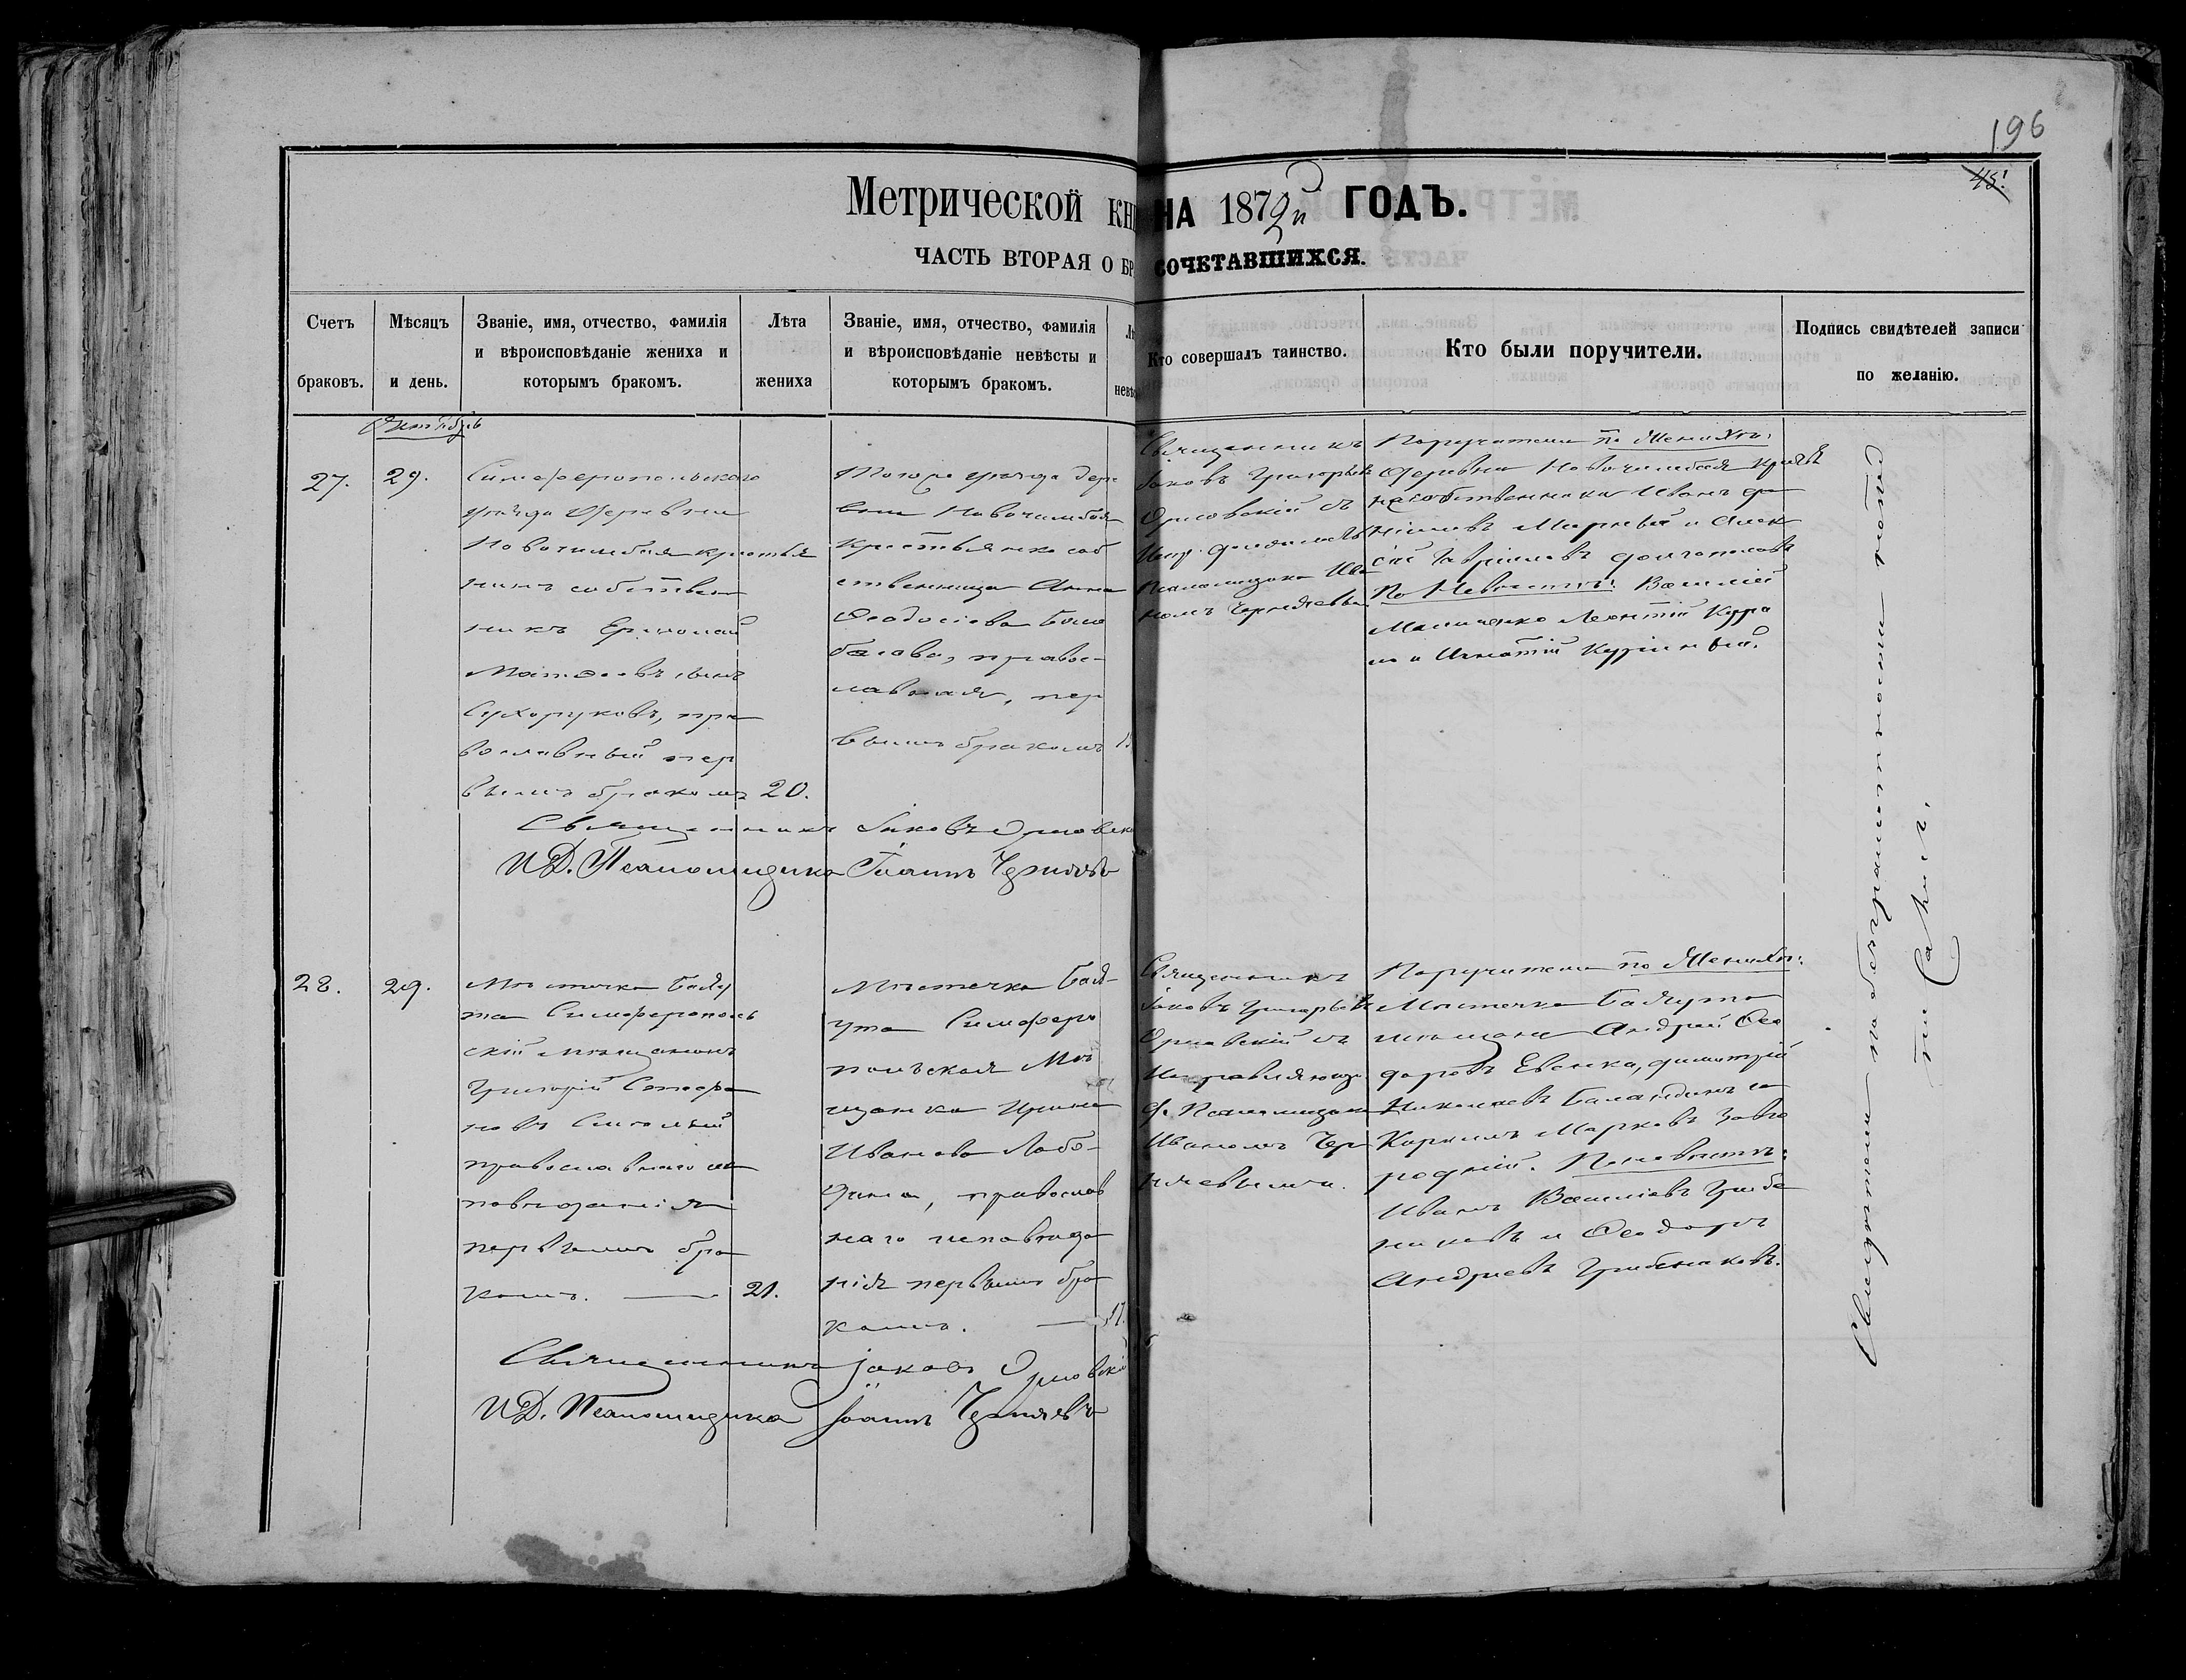 196
45!
Метрической кни НА 1872й ГОДЪ.
ЧАСТЬ ВТОРАЯ О БР СОЧЕТАВШИХСЯ.
Счетъ браковъ.
Мѣсяцъ и день.
Званіе, имя, отчество, фамилія
и вѣроисповѣданіе жениха и
которымъ бракомъ.
Лѣта
жениха
Званіе, имя, отчество, фамилія
и вѣроисповѣданіе невѣсты и
которымъ бракомъ.
Лѣ
невѣс
Кто совершалъ таинство.
Кто были поручители.
Подпись свидѣтелей записи
по желанію.
Октябрь
27.
29.
Симферопольскаго
уѣзда Деревни
Новочимбая крестья
нинъ собствен
никъ Ермолай
Матѳеевъ сынъ
Сухоруковъ, пра
вославный пер
вымъ бракомъ
20.
Тогоже уѣзда дере
вни Новочимбая
крестьянка соб
ственница Анна
Ѳеодосіева Бало
балова, правос-
лавная, пер
вымъ бракомъ
Священникъ
Іаковъ Григорьевъ
Орловскій съ
Испр. должность
Псаломщика Ива
номъ Чернявевы
Поручители по Женихѣ:
Деревни Новочимбая крестья
не собственники Иванъ Да
ніиловъ Мирный и Алек
сій Гавріиловъ Долгополовъ
По Невѣстѣ: Василій
Маличенко Леонтій Кура
ло и Игнатій Куриный.
Священникъ Іаковъ Орловск
И.Д. Псаломщика Іоаннъ Чернявъ
28.
29.
Мѣстечка Баяу
та Симферополь
скій мѣщанинъ
Григорій Стефа
новъ Смолный
православнаго ис
повѣданія
первымъ бра
комъ.
21.
Мѣстечка Бая-
ута Симферо
польская Мѣ
щанка Ирина
Иванова Лобо-
дина, православ
наго исповѣда
нія первымъ бра
комъ.
17.
Священникъ
Іаковъ Григорьевъ
Орловскій съ
Исправляющ.
д. Псаломщика
Иваномъ Чер
нявевымъ.
Поручители по Женихѣ:
Мѣстечка Баяута
мѣщане Андрей Ѳео
доровъ Евенко, Димитрій
Николаевъ Баландинъ и
Кирилъ Марковъ Заго
родній. По невѣстѣ:
Иванъ Васильевъ Грибе
никовъ и Ѳеодоръ
Андреевъ Грибениковъ.
Священникъ Іаковъ Орловскій
И.Д. Псаломщика Іоаннъ Чернявъ
Свидѣтели по безграмотности